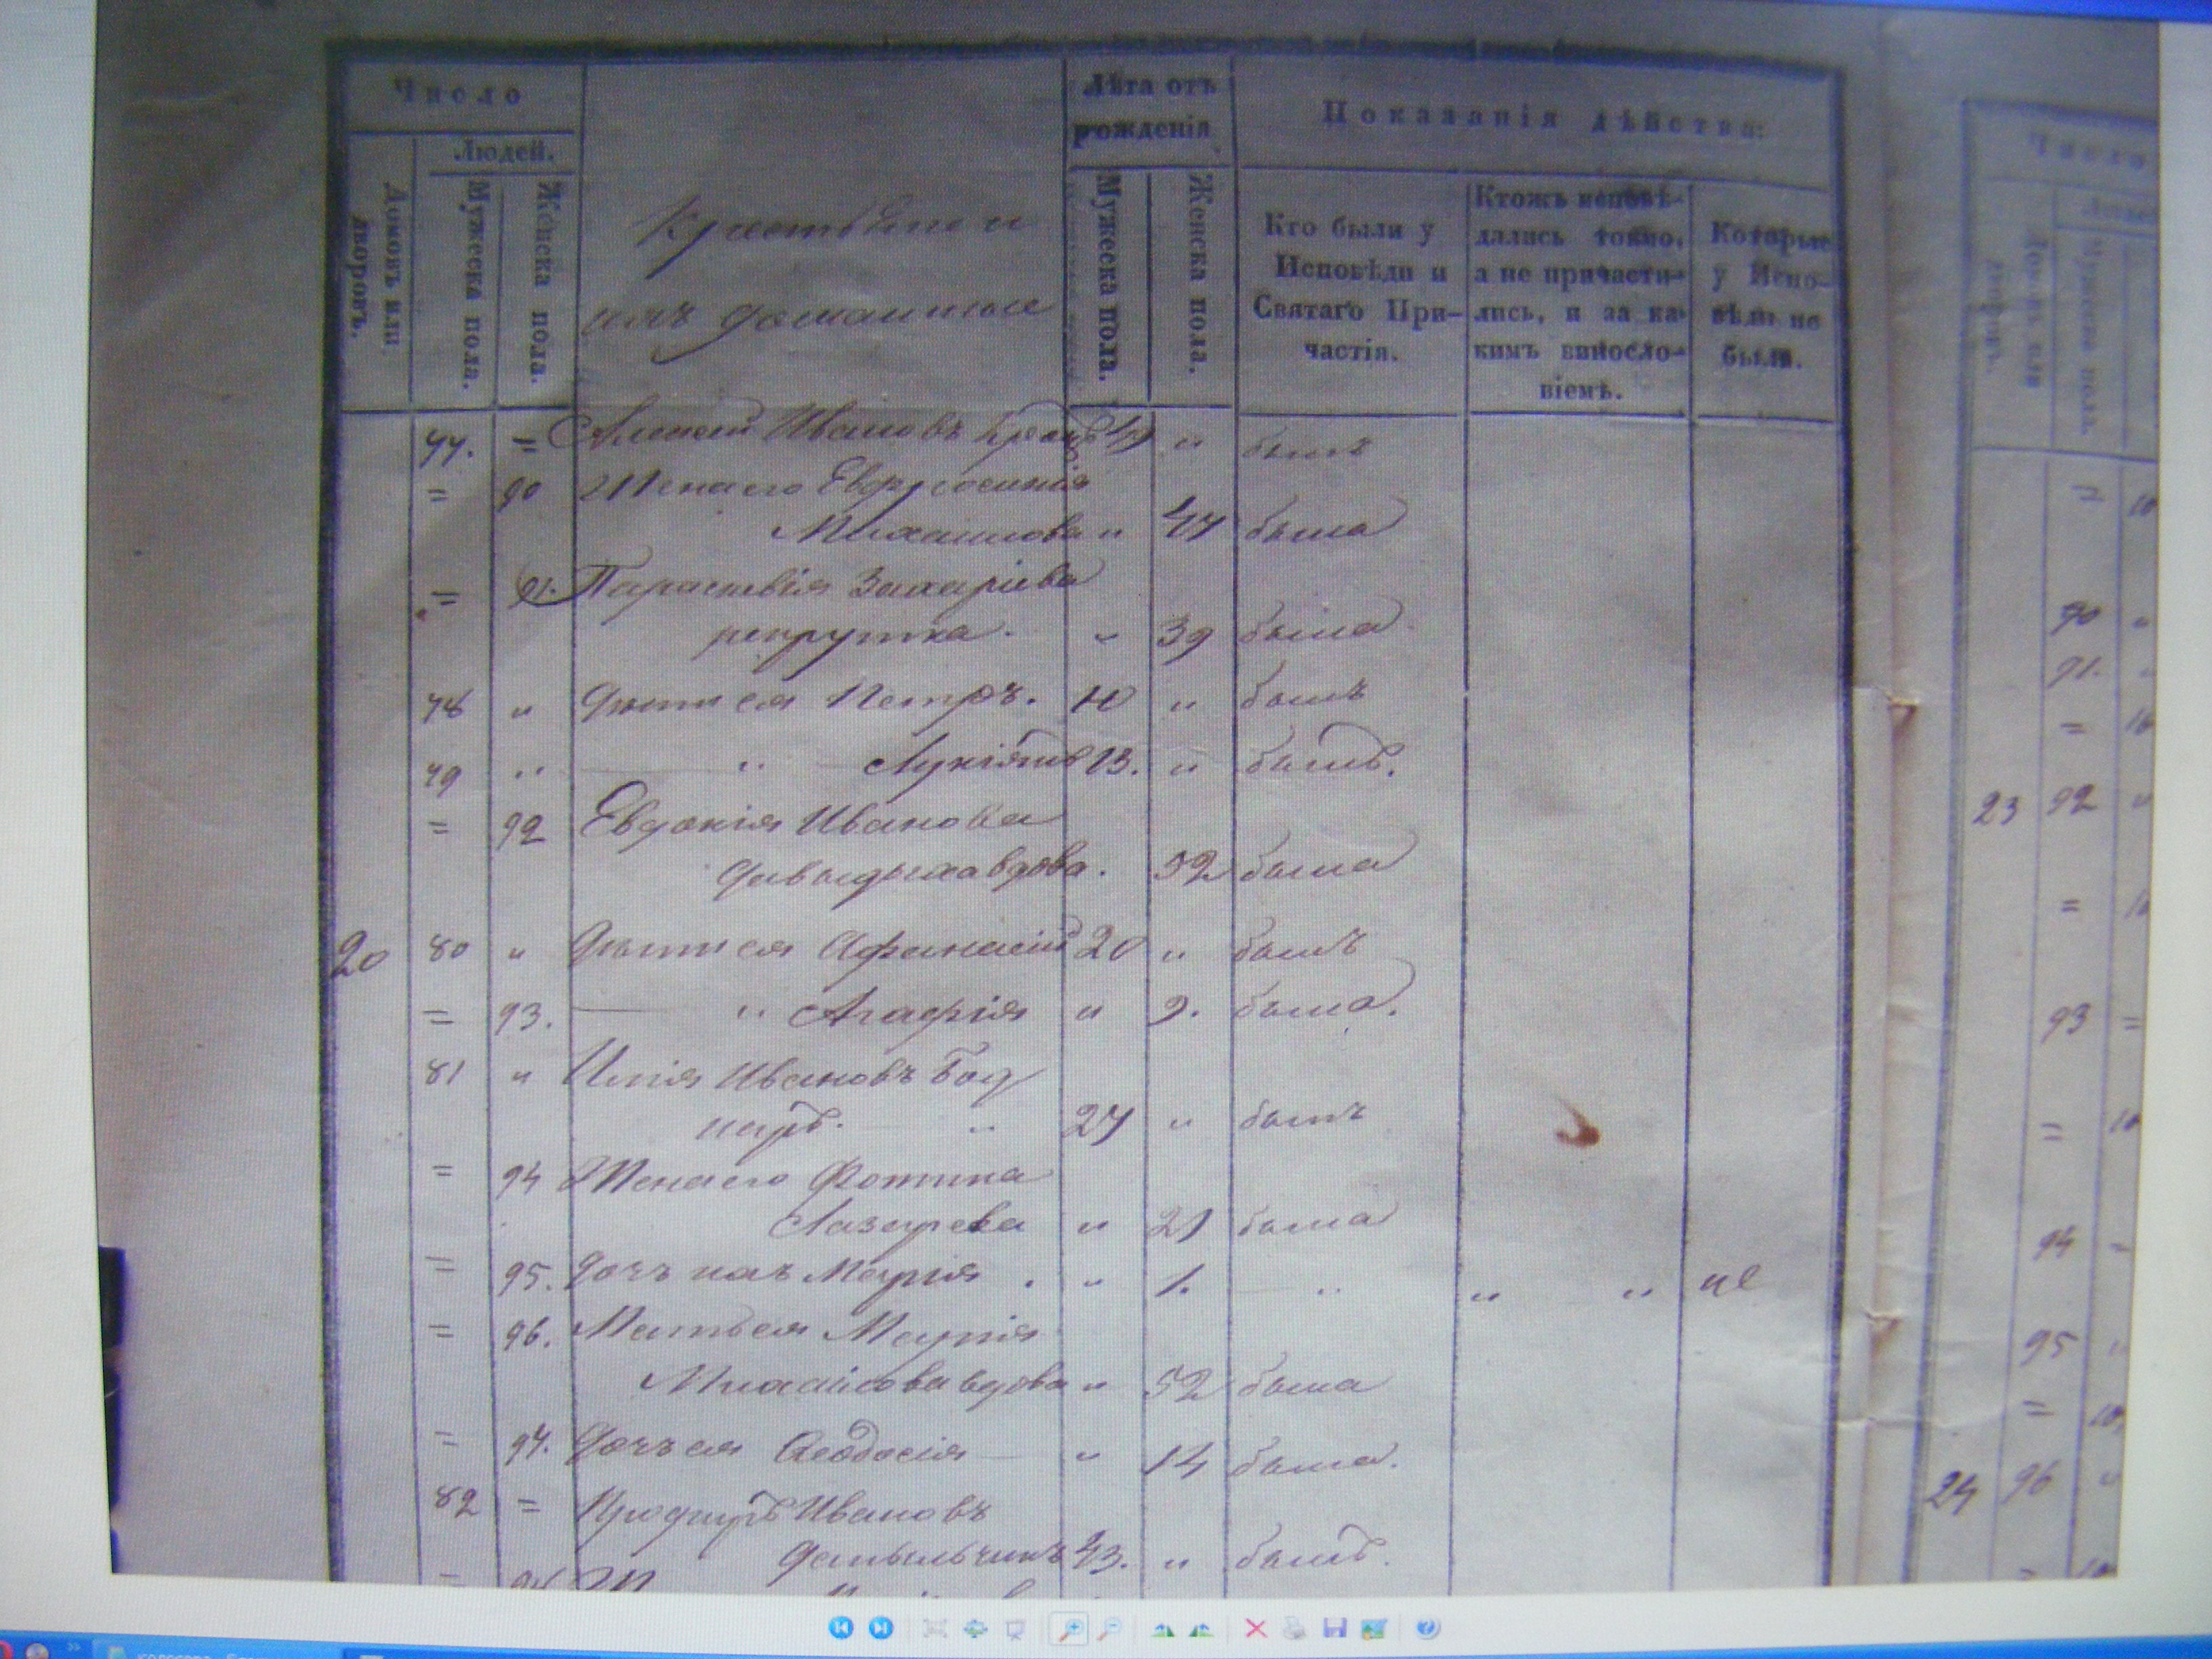 Число
Лѣта отъ рожденія
Показанія дѣйства:
Людей.
Домовъ или дворовъ.
Мужеска пола.
Женска пола.
Крестьяне и
ихъ домашніе
Мужеска пола.
Женска пола.
Кто были у Исповѣди и Святаго Причастія.
Ктожъ исповѣдались токмо, а не причастились, и за какимъ винословіемъ.
Которые у Исповѣди не были.
77. = Алексей Ивановъ 49 " былъ
= 90 Жена его Евфросинія
Михаилова " 47 была
= 91. Параскевія Захаріева
рекрутка. " 39 была
78 " Дѣти ея Петръ. 10 " былъ
79 " " Лукіянъ 13. " былъ.
= 92 Евдокія Иванова
вдова. 52 была
20 80 " Дѣти ея Афанасій 20 " былъ
= 93. " Агафія " 9. была.
81 " Илія Ивановъ Бод
наръ. " 27 " былъ
= 94 Жена его Фотина
Лазарева " 21 была
= 95. Дочь ихъ Марія . " 1. " " " не
= 96. Мать ея Марія
вдова " 52 была
= 97. Дочь ея Феодосія " 14 была.
82 = Ивановъ
43. " былъ.
Число
23 92 "
93 =
94 =
95 "
24 96 "